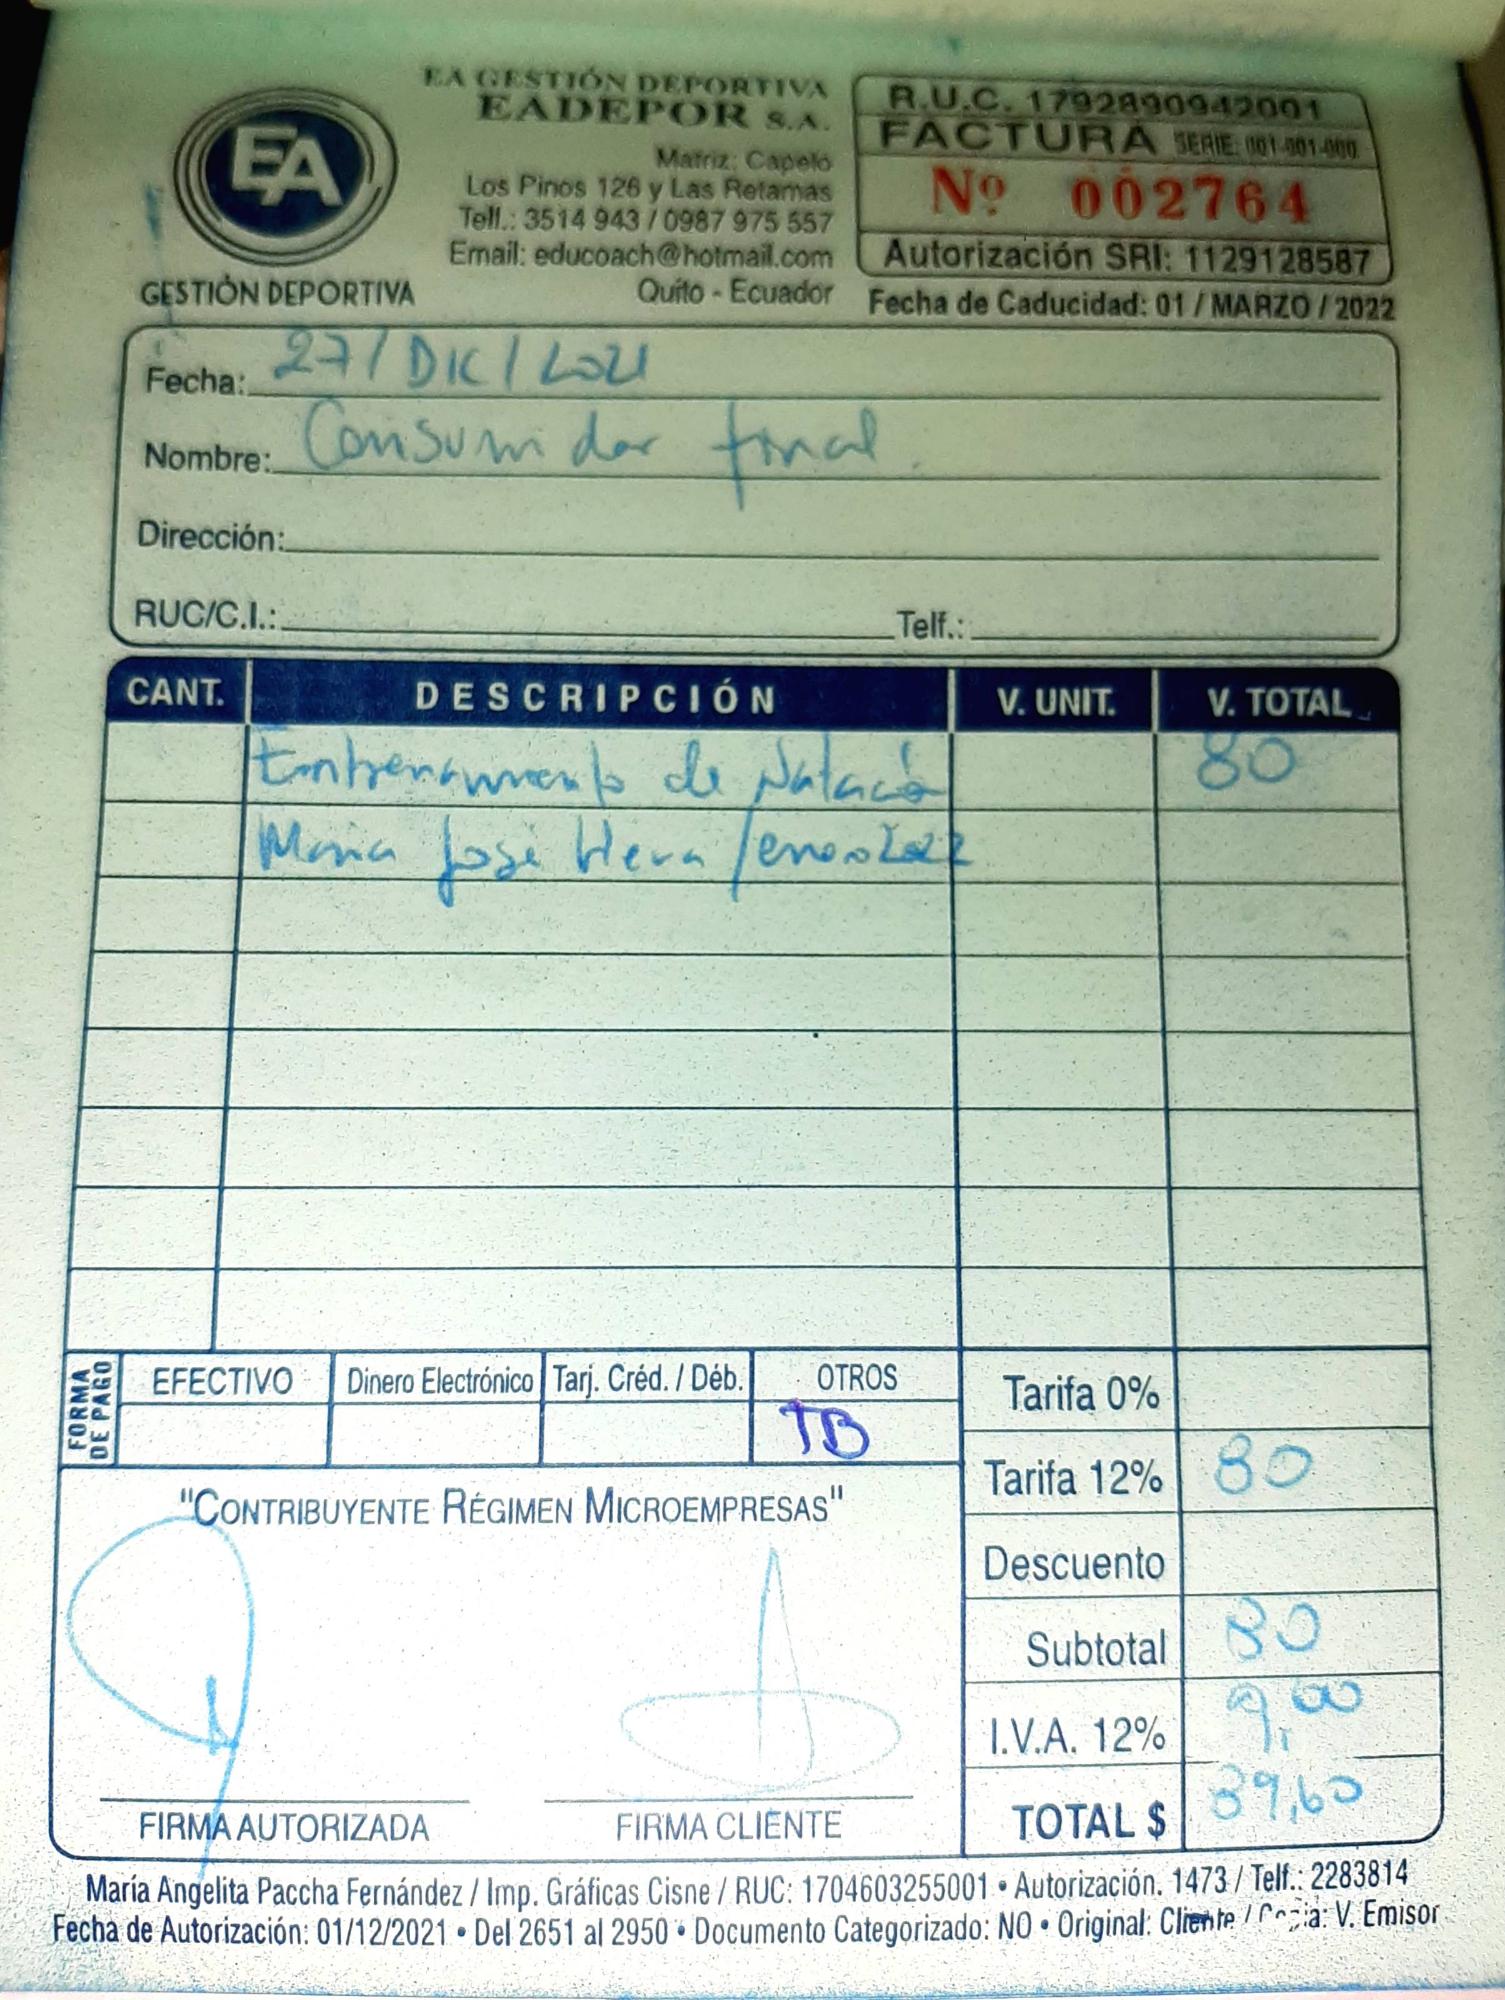 EA GESTIÓN DEPORTIVA
EADEPOR S.A.
Matriz: Capelo
Los Pinos 126 y Las Retamas
Telf.: 3514 943 / 0987 975 557
Email: educoach@hotmail.com
Quito - Ecuador
EA
GESTIÓN DEPORTIVA
R.U.C. 1792890942001
FACTURA SERIE: 001-001-000
Nº 002764
Autorización SRI: 1129128587
Fecha de Caducidad: 01 / MARZO / 2022
Fecha: 27/DIC/2021
Nombre: Consumidor final.
Dirección:
RUC/C.I.: Telf.:
CANT. DESCRIPCIÓN V. UNIT. V. TOTAL
Entrenamiento de Natació 80
Maria José /enero 2022
FORMA DE PAGO EFECTIVO Dinero Electrónico Tarj. Créd. / Déb. OTROS
TB
Tarifa 0%
Tarifa 12% 80
Descuento
Subtotal 80
I.V.A. 12% 9,60
TOTAL $ 89,60
"CONTRIBUYENTE RÉGIMEN MICROEMPRESAS"
FIRMA AUTORIZADA FIRMA CLIENTE
María Angelita Paccha Fernández / Imp. Gráficas Cisne / RUC: 1704603255001 • Autorización. 1473 / Telf.: 2283814
Fecha de Autorización: 01/12/2021 • Del 2651 al 2950 • Documento Categorizado: NO • Original: Cliente / Copia: V. Emisor